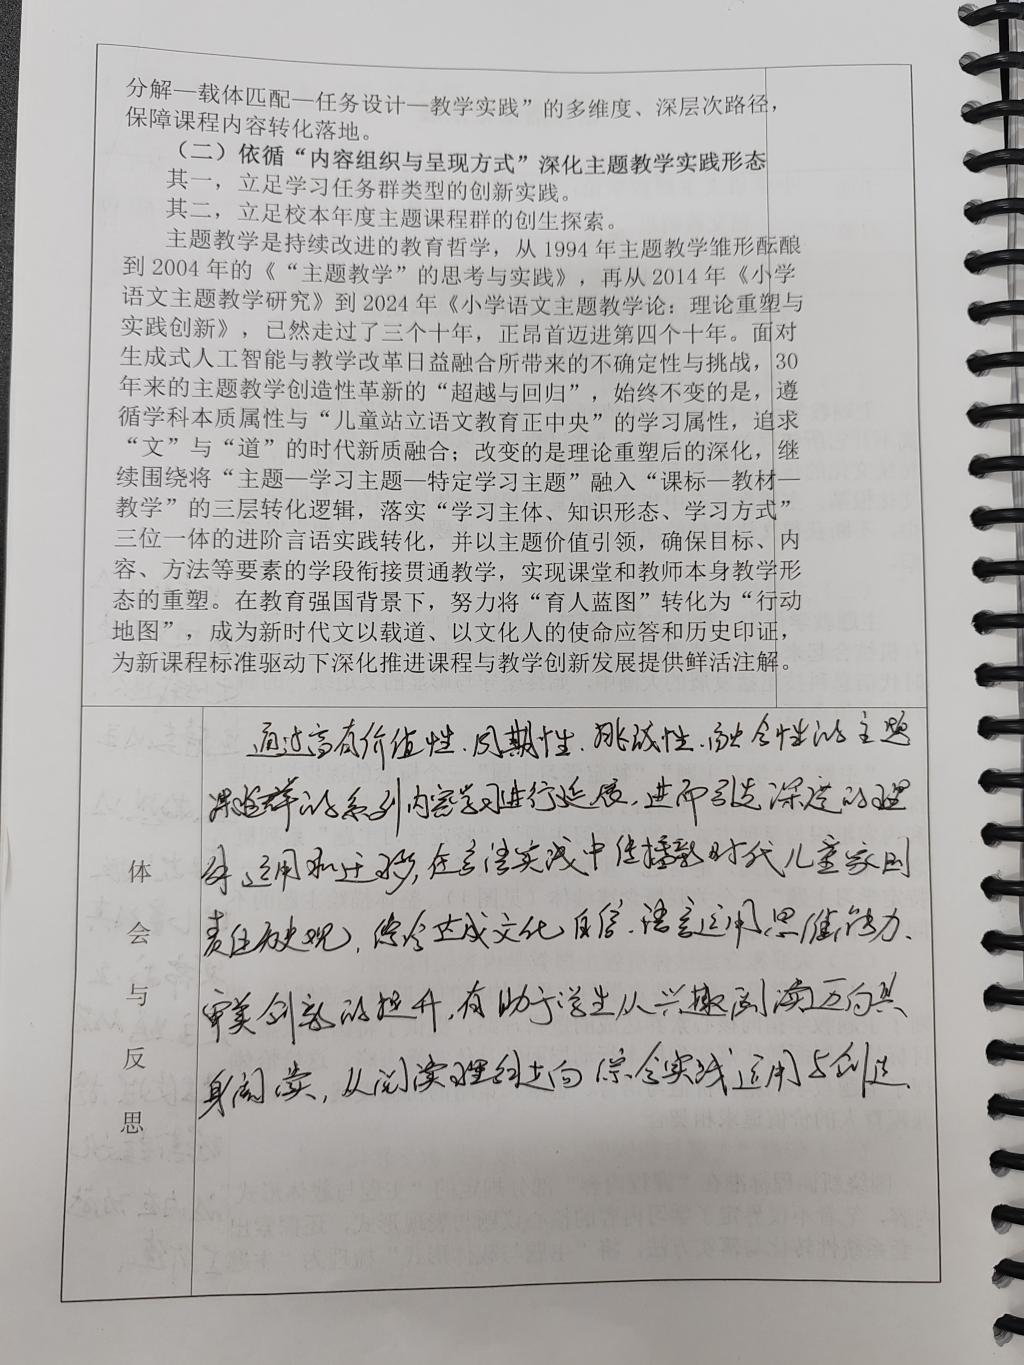 分解—载体匹配—任务设计—教学实践”的多维度、深层次路径，
保障课程内容转化落地。
（二）依循“内容组织与呈现方式”深化主题教学实践形态
其一，立足学习任务群类型的创新实践。
其二，立足校本年度主题课程群的创生探索。
主题教学是持续改进的教育哲学，从 1994 年主题教学雏形酝酿
到 2004 年的《“主题教学”的思考与实践》，再从 2014 年《小学
语文主题教学研究》到 2024 年《小学语文主题教学论：理论重塑与
实践创新》，已然走过了三个十年，正昂首迈进第四个十年。面对
生成式人工智能与教学改革日益融合所带来的不确定性与挑战，30
年来的主题教学创造性革新的“超越与回归”，始终不变的是，遵
循学科本质属性与“儿童站立语文教育正中央”的学习属性，追求
“文”与“道”的时代新质融合；改变的是理论重塑后的深化，继
续围绕将“主题—学习主题—特定学习主题”融入“课标—教材—
教学”的三层转化逻辑，落实“学习主体、知识形态、学习方式”
三位一体的进阶言语实践转化，并以主题价值引领，确保目标、内
容、方法等要素的学段衔接贯通教学，实现课堂和教师本身教学形
态的重塑。在教育强国背景下，努力将“育人蓝图”转化为“行动
地图”，成为新时代文以载道、以文化人的使命应答和历史印证，
为新课程标准驱动下深化推进课程与教学创新发展提供鲜活注解。
体会与反思
通过富有价值性、周期性、挑战性、融合性的主题
课程群的系列内容学习进行延展，进而引造深度的理
解、运用和迁移，在言语实践中传播新时代儿童家国
责任历史观，综合达成文化自信、语言运用、思维能力、
审美创新的提升，有助于学生从兴趣阅读迈向具
身阅读，从阅读理解走向综合实践运用与创造、